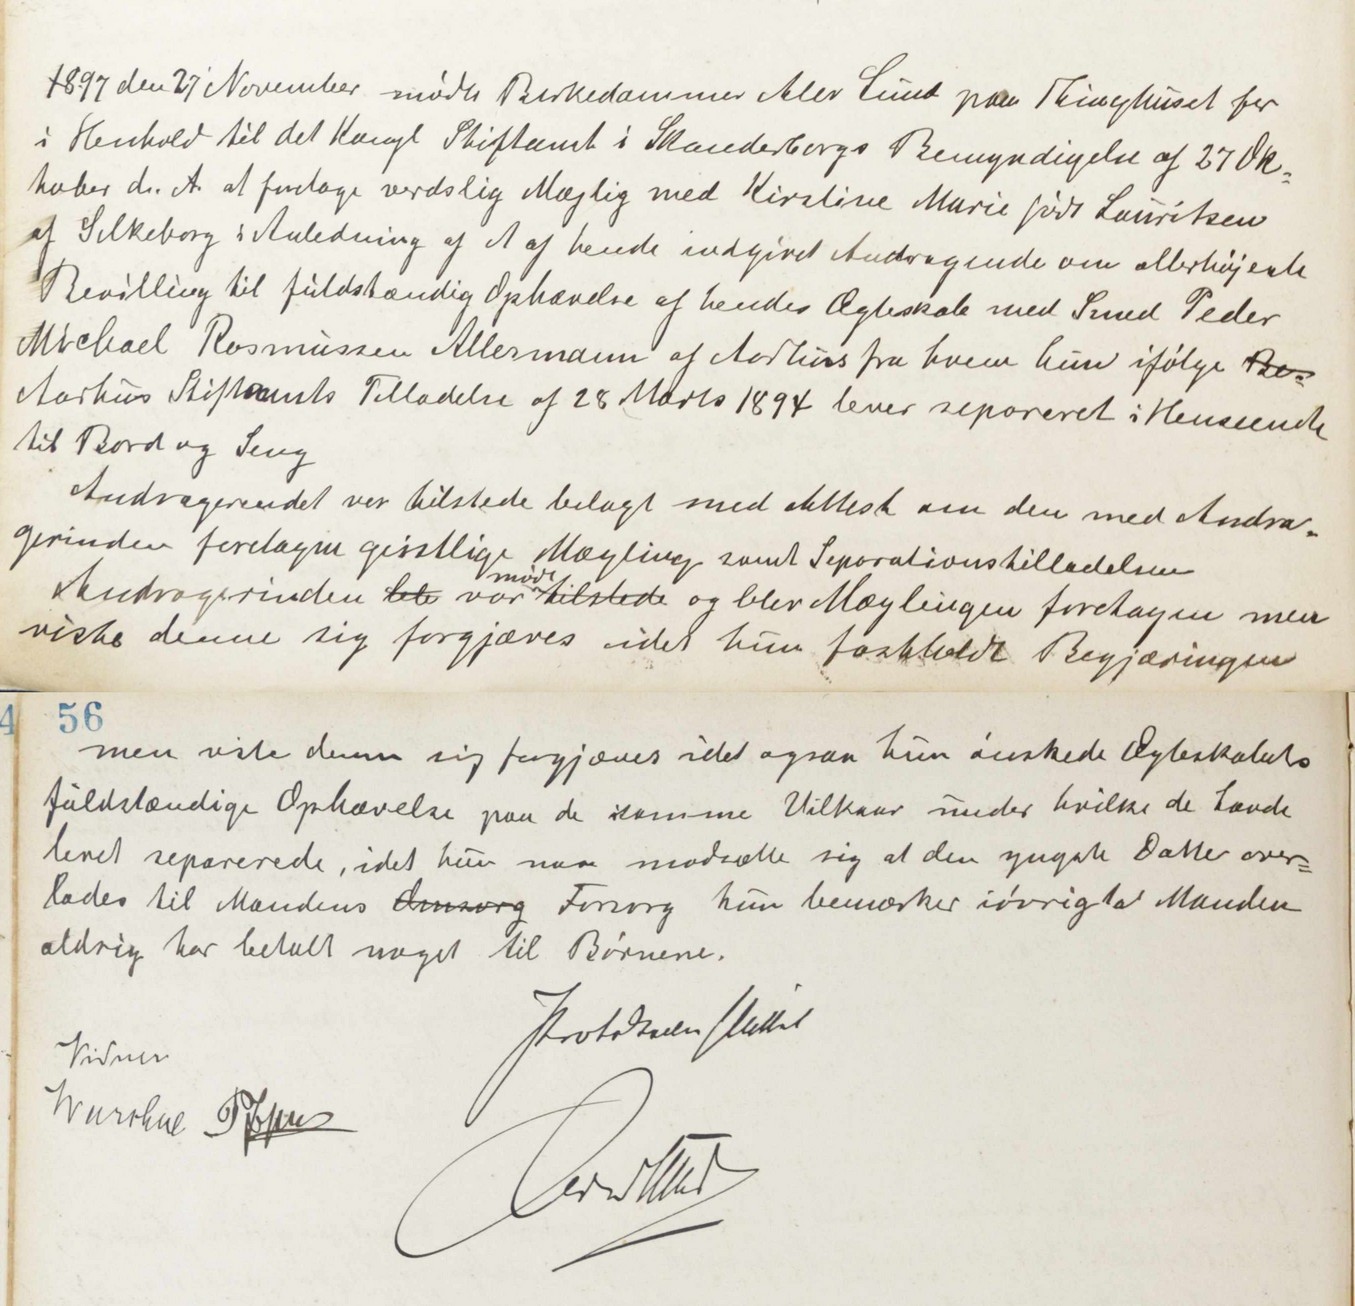 1897 den 27 November mødte Birkedommer Lund paa Thinghuset for
i Henhold til det Kongl Stiftamt i Skanderborgs Bemyndigelse af 27 Ok=
tober d. A. at foretage verdslig Mæglig med Kirstine Marie født Lauritsen
af Silkeborg i Anledning af A af hende indgivet Andragende om allerhøjeste
Bevilling til fuldstændig Ophævelse af hendes Ægteskab med Smed Peder
Michael Rasmussen Allermann af Aarhus fra hvem hun ifølge Be=
Aarhus Stiftamts Tilladelse af 28 Marts 1894 lever separeret i Henseende
til Bord og Seng
Andragerendet var tilstede belagt med Attest om den med Andra=
gerinden foretagne geistlige Mægling samt Separationstilladelsen
Andragerinden var mødt tilstede og blev Mæglingen foretagen men
viste denne sig forgjæves idet hun fastholdt Begjæringen
4 56
men viste denne sig forgjæves idet ogsaa hun ønskede Ægteskabets
fuldstændige Ophævelse paa de samme Vilkaar under hvilke de havde
levet separerede, idet hun maa modsætte sig at den yngste Datter over=
lades til Mandens Omsorg Forsorg hun bemærker iøvrigt at Manden
aldrig har betalt noget til Børnene.
Vidner